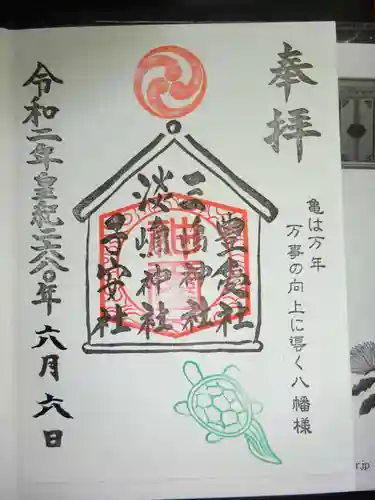 奉拝
亀は万年
万事の向上に導く八幡様
豊受社
三嶋神社
淡嶋神社
子安社
令和二年皇紀二六八〇年六月六日
r.jp